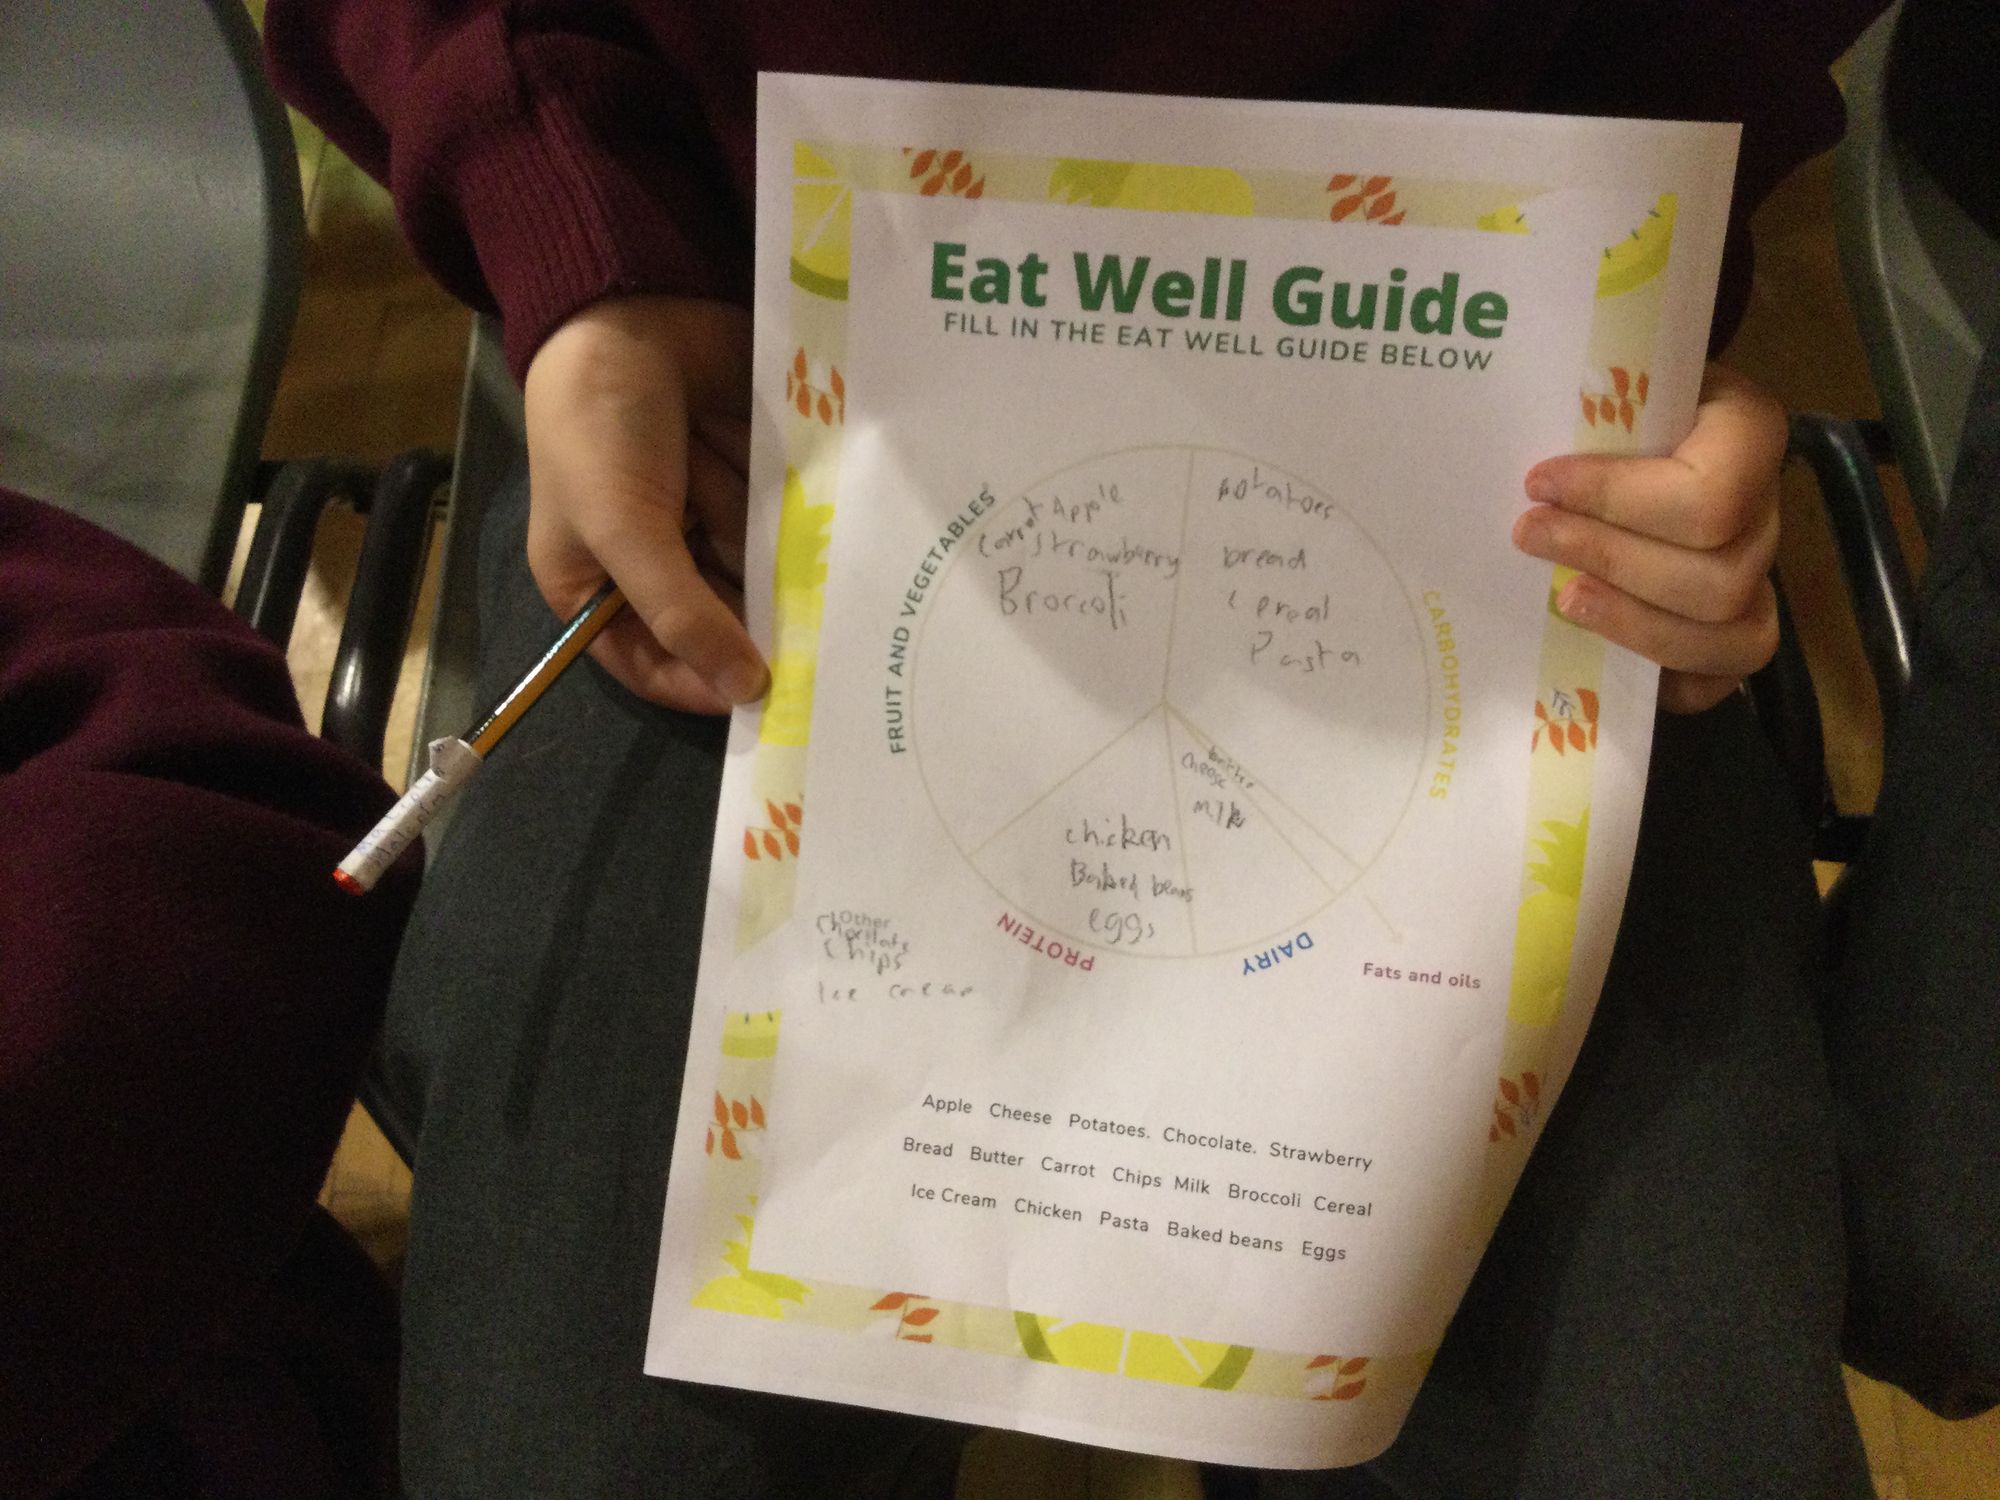 Eat Well Guide
FILL IN THE EAT WELL GUIDE BELOW
FRUIT AND VEGETABLES
Carrot Apple
Strawberry
Broccoli
potatoes
bread
cereal
Pasta
CARBOHYDRATES
butter
cheese
milk
chicken
Baked beans
eggs
PROTEIN
DAIRY
Fats and oils
Other
Choclate
Chips
Ice cream
Apple Cheese Potatoes. Chocolate. Strawberry
Bread Butter Carrot Chips Milk Broccoli Cereal
Ice Cream Chicken Pasta Baked beans Eggs